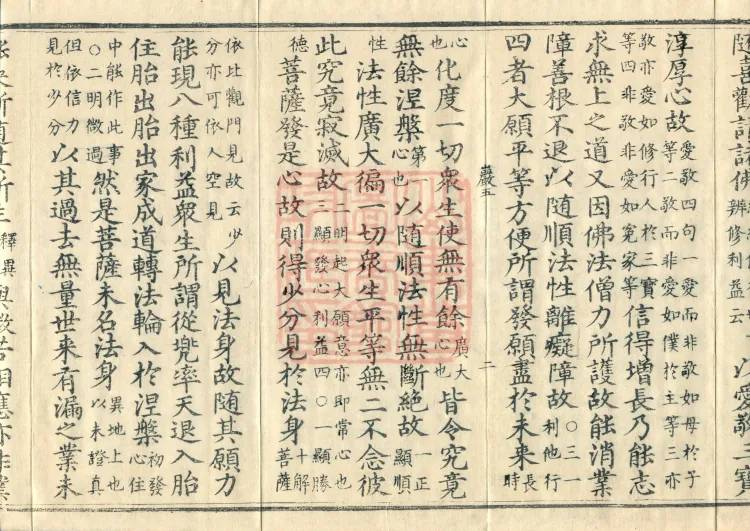 隨喜勸請諸佛
以愛敬三寶
淳厚心故愛敬四句一愛而非敬如母於子等二敬而非愛如僕於主等三亦
敬亦愛如修行人於三寶等四非敬非愛如冤家等信得增長乃能志
求無上之道又因佛法僧力所護故能消業
障善根不退以隨順法性離癡障故〇三一利他行
四者大願平等方便所謂發願盡於未來長時
嚴五
二
心也化度一切衆生使無有餘廣大心也皆令究竟
無餘涅槃第一心也以隨順法性無斷絕故一正顯順
性法性廣大徧一切衆生平等無二不念彼
此究竟寂滅故二明起大願意亦即常心也三顯發心利益四〇一顯勝
德菩薩發是心故則得少分見於法身十解菩薩
依比觀門見故云少分亦可依人空見以見法身故隨其願力
能現八種利益衆生所謂從兜率天退入胎
住胎出胎出家成道轉法輪入於涅槃初發心住
中能作此事〇二明微過然是菩薩未名法身異地上也以未證真
但依信力見於少分以其過去無量世来有漏之業未